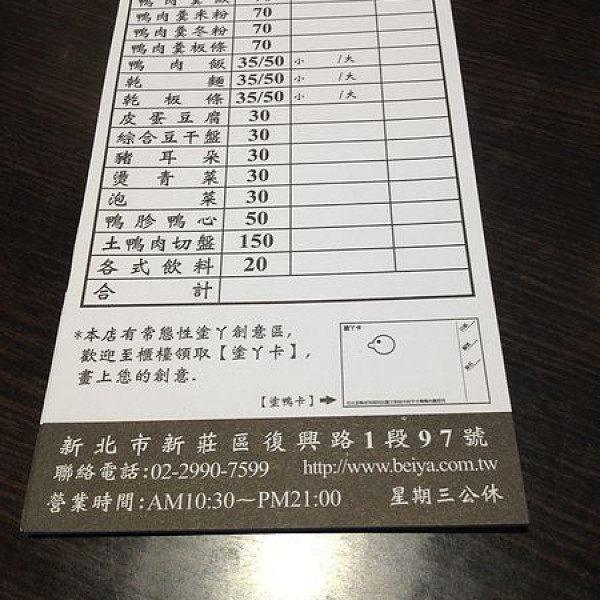 鴨肉羹飯 70
鴨肉羹米粉 70
鴨肉羹冬粉 70
鴨肉羹板條 70
鴨肉飯 35/50 小 /大
乾麵 35/50 小 /大
乾板條 35/50 小 /大
皮蛋豆腐 30
綜合豆干盤 30
豬耳朵 30
燙青菜 30
泡菜 30
鴨胗鴨心 50
土鴨肉切盤 150
各式飲料 20
合計
*本店有常態性塗丫創意區,
歡迎至櫃檯領取【塗丫卡】,
畫上您的創意.
塗丫卡
【塗鴨卡】
新北市新莊區復興路1段97號
聯絡電話:02-2990-7599 http://www.beiya.com.tw
營業時間:AM10:30～PM21:00 星期三公休